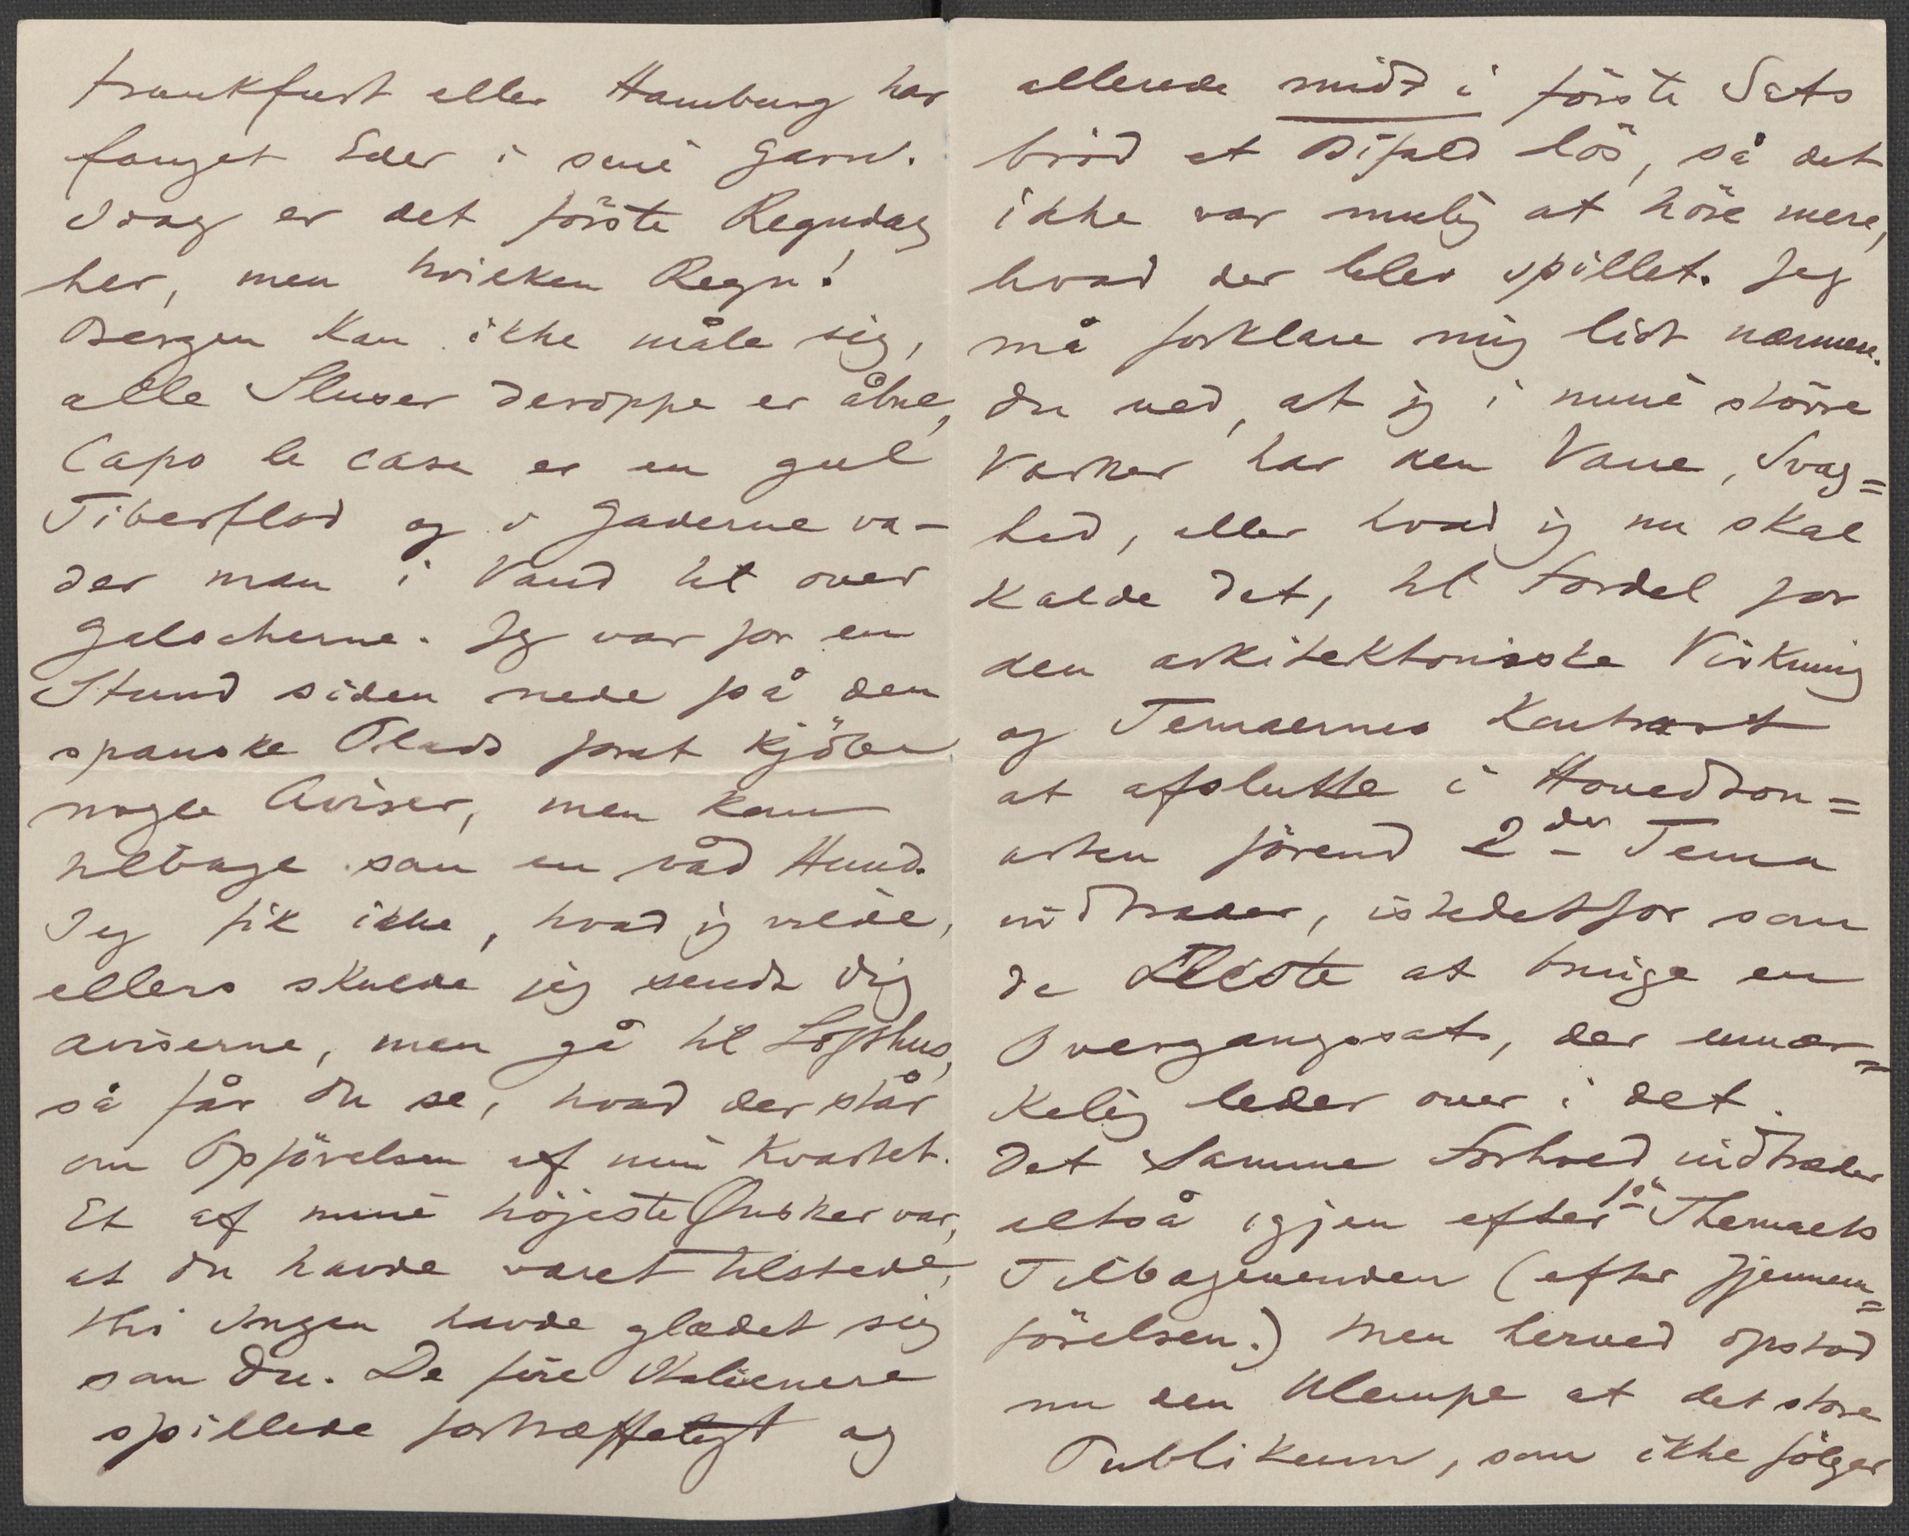 Frankfurt eller Hamburg har
fanget Eder i sine Garn.
Idag er det förste Regndag
her, men hvilken Regn!
Bergen kan ikke måle sig,
alle Sluser deroppe er åbne,
Capo le case er en gul
Tiberflod og i Gaderne va-
der man i Vand til over
Galocherne. Jeg var for en
Stund siden nede på den
spanske Plads forat kjöbe
nogle Aviser, men kom
tilbage som en våd Hund.
Jeg fik ikke, hvad jeg vilde,
ellers skulde jeg sendt Dig
aviserne, men gå til Lofthus,
så får Du se, hvad der står
om Opförelsen af min Kvartet.
Et af mine höjeste Ønsker var,
at Du havde været tilstede,
thi Ingen havde glædet sig
som Du. De fire Italienere
spillede fortræffeligt og
allerede midt i förste Sats
bröd et Bifald lös, så det
ikke var mulig at höre mere,
hvad der blev spillet. Jeg
må forklare mig lidt nærmere.
Du ved, at jeg i mine större
Værker har den Vane, Svag=
hed, eller hvad jeg nu skal
kalde det, til Fordel for
den arkitektoniske Virkning
og Temaernes Kontrast
at afslutte i Hovedton=
arten förend 2det Tema
indtræder, istedetfor som
de Fleste at bruge en
Overgangssats, der umær=
kelig leder over i det.
Det samme Forhold indtræder
altså igjen efter 1ste Themaets
Tilbagevenden (efter Gjennem=
förelsen.) Men herved opstod
nu den Ulempe at det store
Publikum, som ikke fölger